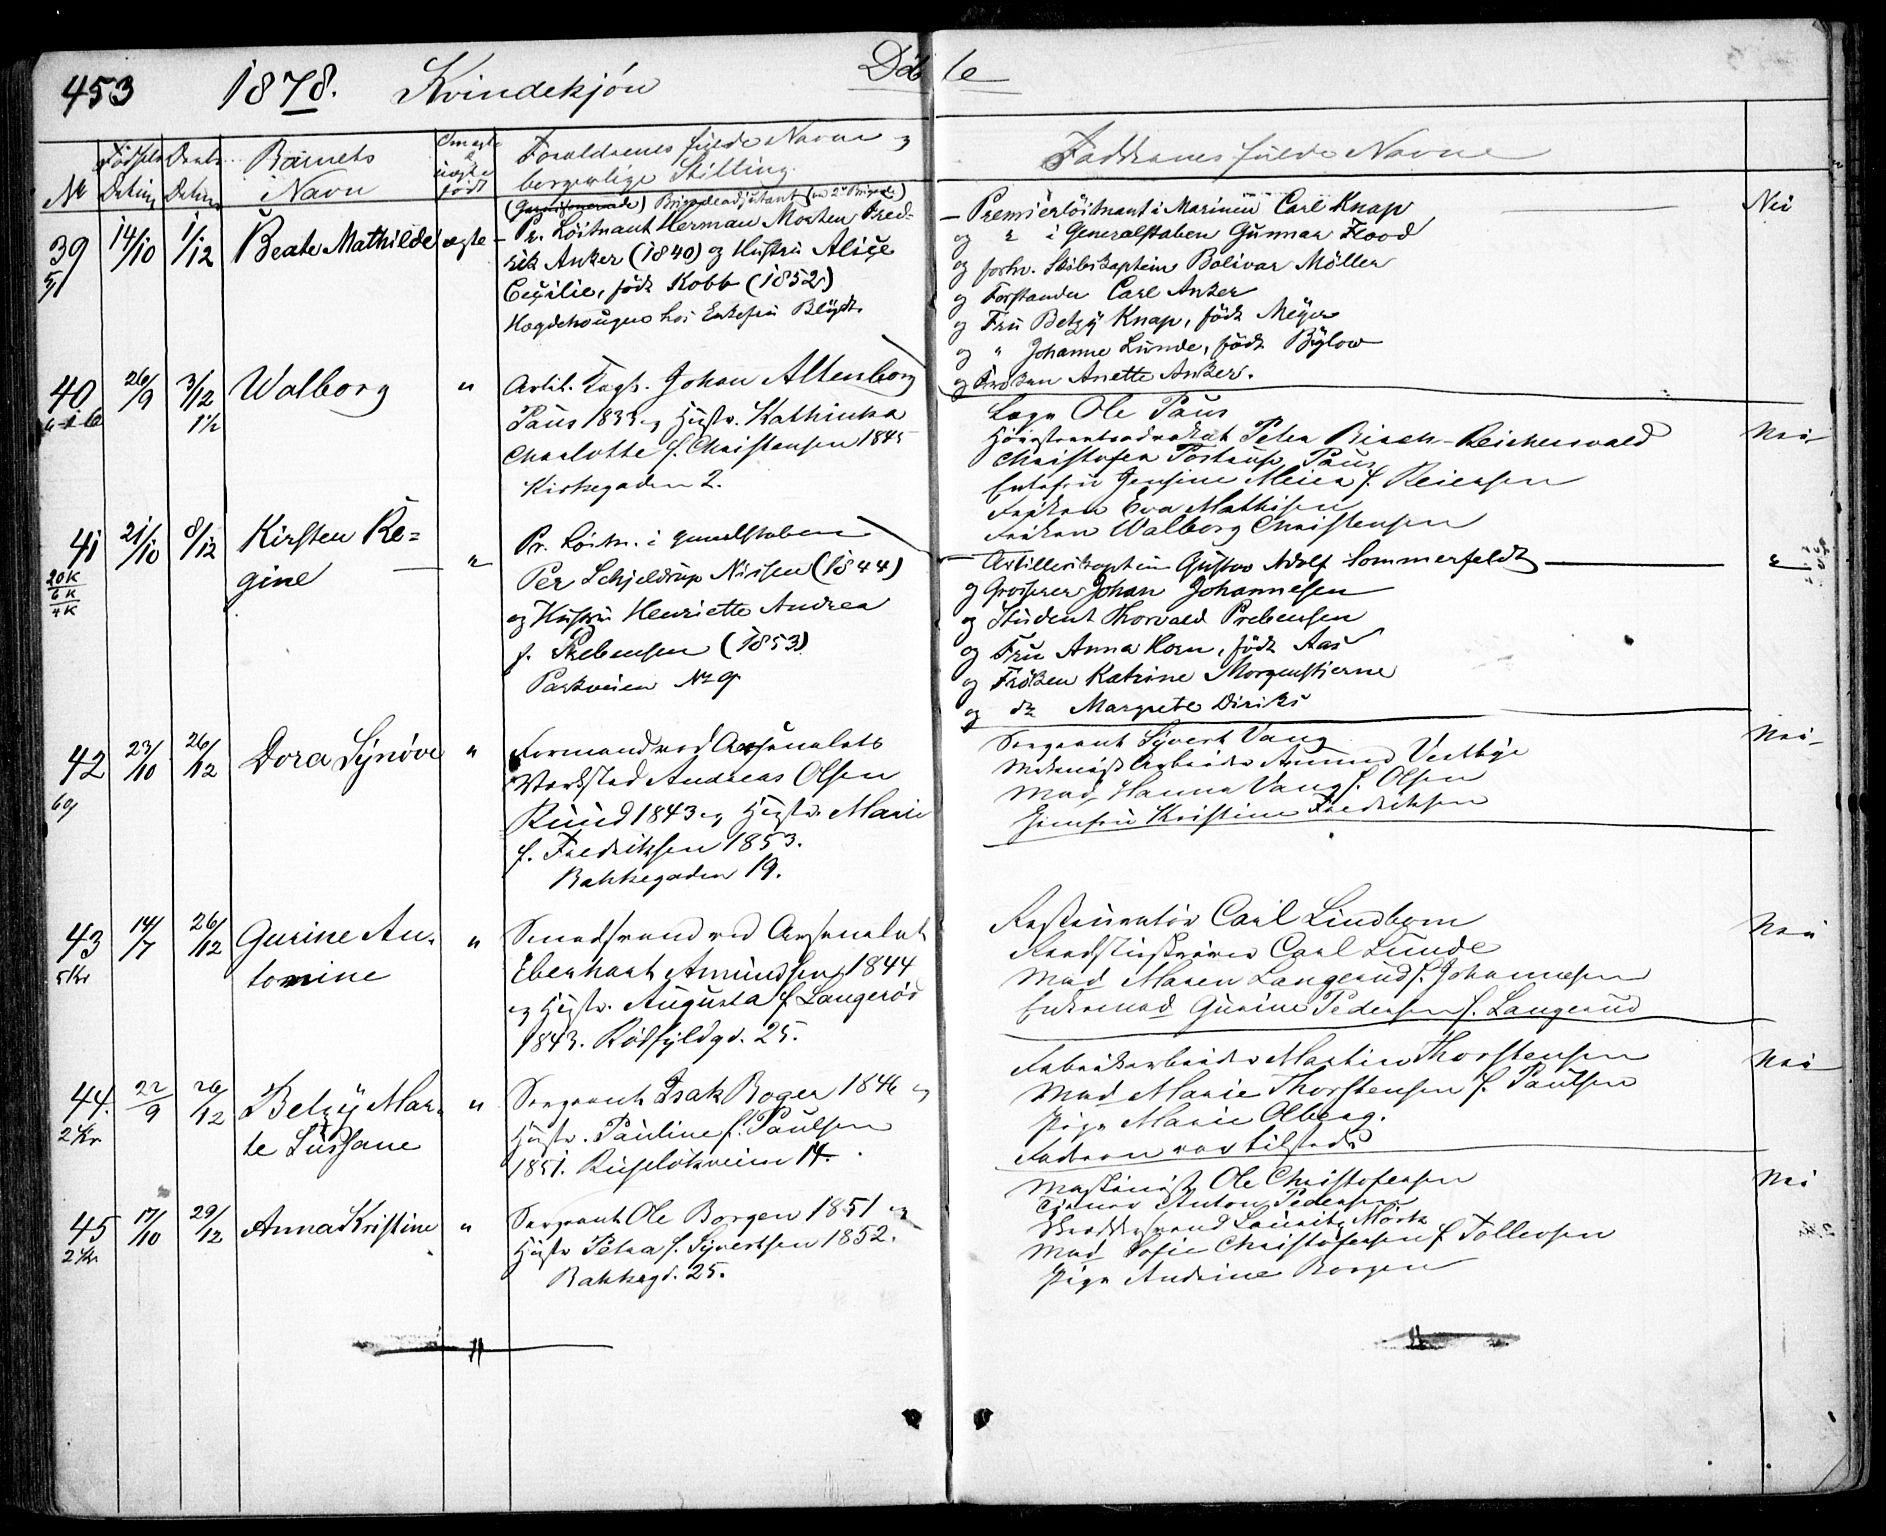 453 1878. Kvindekjön Döbte
No Födsels Datum Daabs Datum Barnets Navn Om ægte el. uægte födt Forældrenes fulde Navne og borgerlige Stilling. Faddernes fulde Navne
39 14/10 1/12 Beate Mathilde ægte
(Garnisonerende) Brigadeadjutant ved 2den Brigade)
Pr. Löitnant Herman Morten Fred-
rik Anker (1840) og Hustru Alice
Cecilie, födt Kobb (1852)
Hægdehougen hos Enkefru Blÿdt.
Premierlöitnant i Marinen Carl Knap Nei
og " i Generalstaben Gunnar Flood
og forhv. Skibskaptein Bolivar Möller
og Forstander Carl Anker
og Fru Betzÿ Knap, födt Meÿer
og " Johanne Lunde, födt Bÿlow
og Fröken Anette Anker.
40 26/9 3/12 Walborg "
1½
Artil. Kapt. Johan Altenborg
Paus 1833 og Hustr. Kathinka
Charlotte f. Christensen 1845
Kirkegaden 2.
Læge Ole Paus
Höiestretsadvokat Peter Birch-Reichenwald Nei
Christofer Tostrup Paus
Enkefru Jensine Meier f. Reiersen
Fröken Eva Mathisen
Fröken Walborg Christensen
41 21/10 8/12 Kirsten Re=
gine "
20 K
6 K
4 K
Pr. Löitn. i Generalstaben
Per Schjeldrup Nissen (1844)
og Hustru Henriette Andrea
f. Prebensen (1853)
Parkveien No 9
Artillerikaptein Gustav Adolf Sommerfeldt "
og Grosserer Johan Johannesen
og Student Thorvald Prebensen
og Fru Anna Horn, födt Aas
og Fröken Katrine Morgenstierne
og do Margrete Diriks
42 23/10 26/12 Dora Sÿnöve "
Formand ved Arsenalets
Værksted Andreas Olsen
Ruud 1843 og Hustr. Marie
f. Fredriksen 1853.
Bakkegaden 19.
Sergeant Sÿvert Vang Nei
Mekanisk Arbeider Amund Vestbÿe
Mad. Hanna Vang f. Olsen
Jomfru Kristine Fredriksen
43 14/7 26/12 Gurine An-
tonine "
5 Kr
Smedsvend ved Arsenalet
Eberhart Amundsen 1844
og Hustr. Augusta f. Langeröd
1843. Rödfÿldgd. 25.
Restauratör Carl Lindbom Nei
Carl Lunde
Mad. Maren Langerud f. Johannesen
Enkemad. Gurine Pedersen f. Langerud
44. 22/9 26/12 Betzÿ Mar-
te Sussane "
2 Kr
Sergeant Isak Roger 1846 og
Hustr. Pauline f. Paulsen
1851. Ruselökveien 14.
Fabrikarbeider Martin Thorstensen Nei
Mad. Marie Thorstensen f. Paulsen
Pige Marie Olberg.
Faderen var tilstede
45 17/10 29/12 Anna Kristine "
2 Kr.
Sergeant Ole Borgen 1851 og
Hustr. Petra f. Sÿvertsen 1852.
Bakkegd. 25.
Maskinist Ole Christofersen Nei
Tjener Anton Pedersen
Skræddersvend Lauritz Mörk
Mad. Sofie Christofersen f. Tollevsen
Pige Andrine Borgen